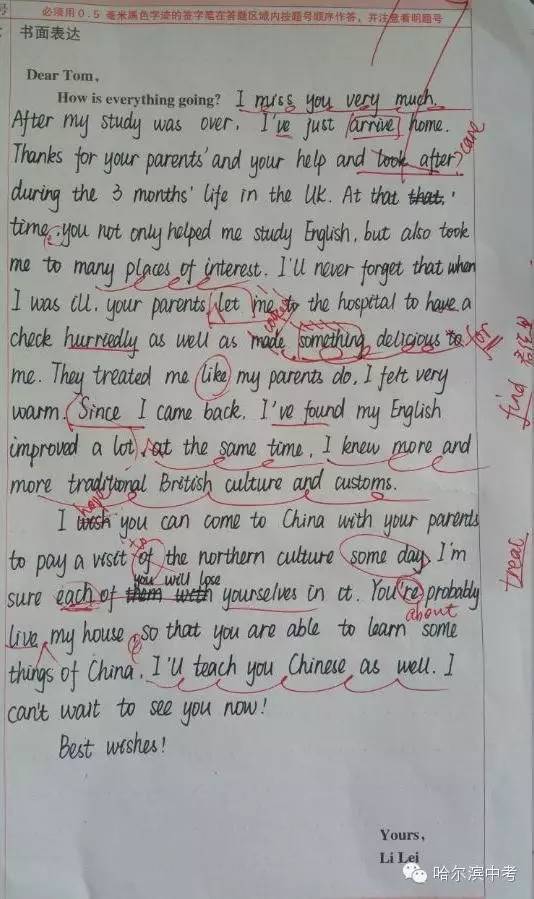 号 必须用0.5毫米黑色字迹的签字笔在答题区域内按题号顺序作答，并注意看明题号
书面表达
Dear Tom,
How is everything going? I miss you very much.
After my study was over, I've just arrive home.
Thanks for your parents' and your help and took after care
during the 3 months' life in the UK. At that that,
time, you not only helped me study English, but also took
me to many places of interest. I'll never forget that when
I was ill, your parents let me to the hospital to have a
check hurriedly as well as made something delicious to for
me. They treated me like my parents do. I felt very
warm. Since I came back, I've found my English
improved a lot, at the same time, I knew more and
more traditional British culture and customs.
I wish hope you can come to China with your parents
to pay a visit of to the northern culture some day. I'm
sure each of them with you will lose yourselves in it. You're probably
live my house, so that you are able to learn some
about
things of China. I'll teach you Chinese as well. I
can't wait to see you now!
Best wishes!
Yours,
Li Lei
find
treat
哈尔滨中考